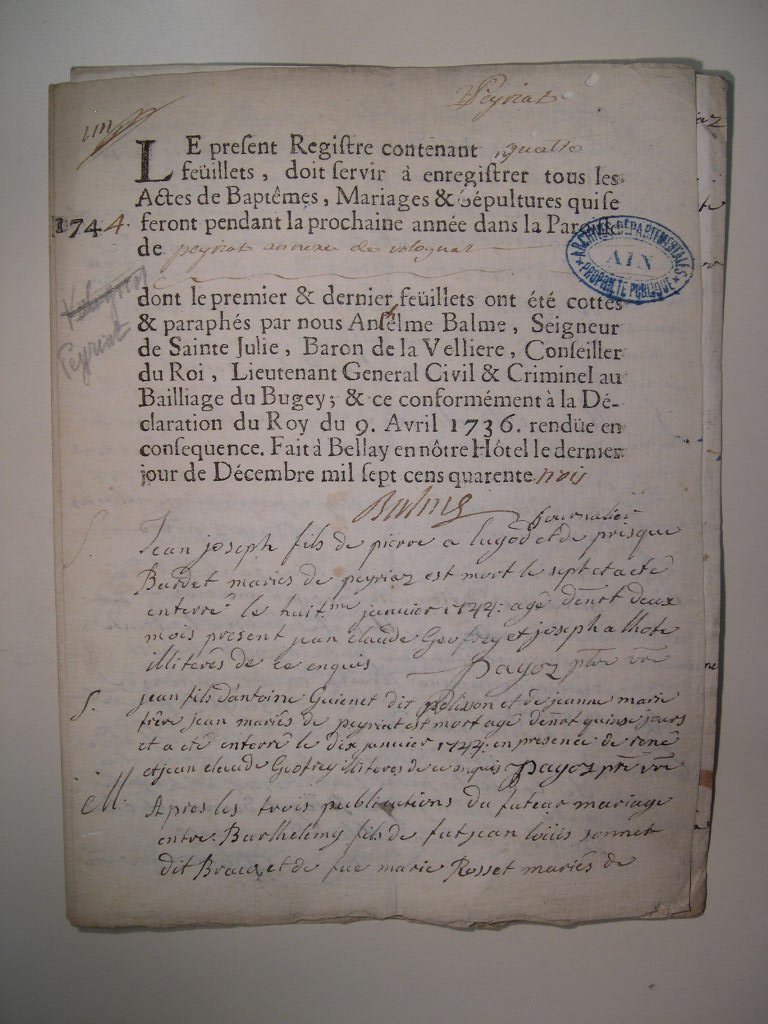 Peyriat
LE present Registre contenant quatre
feüillets, doit servir à enregistrer tous les
Actes de Baptêmes, Mariages & Sépultures qui se
1744. feront pendant la prochaine année dans la Paroisse
de peyriat annexe de volognat
ARCHIVES DÉPARTEMENTALES
AIN
PROPRIÉTÉ PUBLIQUE
Volognat
Peyriat
dont le premier & dernier feüillets ont été cottés
& paraphés par nous Anselme Balme, Seigneur
de Sainte Julie, Baron de la Velliere, Conseiller
du Roi, Lieutenant General Civil & Criminel au
Bailliage du Bugey; & ce conformément à la Dé-
claration du Roy du 9. Avril 1736. rendüe en
consequence. Fait à Bellay en nôtre Hôtel le dernier
jour de Décembre mil sept cens quarente trois
Balme
journalier
S. Jean joseph fils de pierre a lugod et de prisque
Bardet mariés de peyriaz est mort le sept et a eté
enterré le huit.me janvier 1744: agé d'enot deux
mois present jean claude Geoffrey et joseph a lhote
illiterés de ce enquis Payoz ptre vre
S. jean fils d'antoine Guienet dit polisson et de jeanne marie
frére jean mariés de peyriat est mort agé d'enot quinse jours
et a eté enterré le dix janvier 1744: en presence de rené
et jean claude Geofrey illiteres de ce enquis Payoz ptre vre
M. Apres les trois publications du futeur mariage
entre Barthelemy fils de fut jean loüis sonnet
dit Braux et de fue marie Rosset mariés de